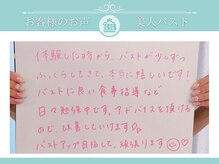 お客様のお声
美人バスト
体験した時から、バストが少しずつ
ふっくらしてきて、本当に嬉しいです!
バストに良い食事指導など
日々勉強中です。アドバイスを頂ける
ので、改善しています
バストアップ目指して、頑張ります